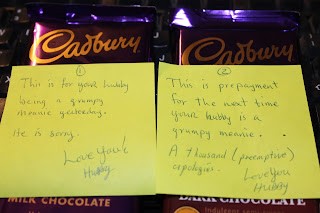 Cadbury
Cadbury
①
This is for your hubby
being a grumpy
meanie yesterday.
He is sorry.
Love You!
Hubby
②
This is prepayment
for the next time
your hubby is a
grumpy meanie.
A thousand (preemptive)
apologies.
Love You
Hubby
MILK CHOCOLATE
DARK CHOCOLATE